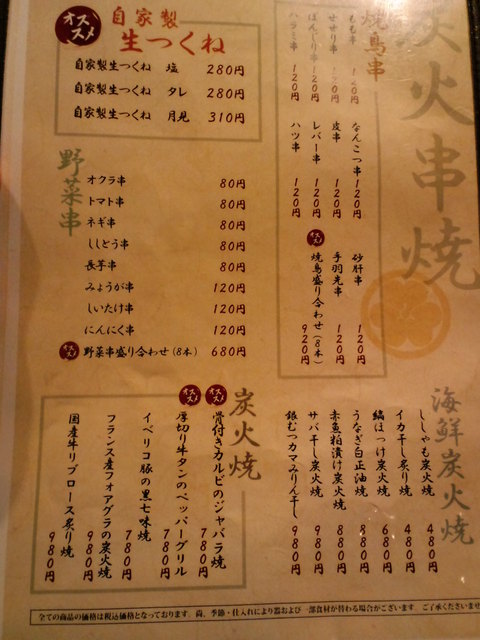 炭火串焼
焼鳥串
もも串 120円
せせり串 120円
ぼんじり串 120円
ハラミ串 120円
なんこつ串 120円
皮串 120円
レバー串 120円
ハツ串 120円
砂肝串 120円
手羽先串 120円
オススメ 焼鳥盛り合わせ(8本) 920円
オススメ
自家製
生つくね
自家製生つくね 塩 280円
自家製生つくね タレ 280円
自家製生つくね 月見 310円
野菜串
オクラ串 80円
トマト串 80円
ネギ串 80円
ししとう串 80円
長芋串 80円
みょうが串 120円
しいたけ串 120円
にんにく串 120円
オススメ 野菜串盛り合わせ(8本) 680円
海鮮炭火焼
ししゃも炭火焼 480円
イカ干し炙り焼 480円
縞ほっけ炭火焼 680円
うなぎ白正油焼 880円
赤魚粕漬け炭火焼 880円
サバ干し炭火焼 980円
銀むつカマみりん干し 980円
炭火焼
オススメ 骨付きカルビのジャバラ焼 780円
オススメ 厚切り牛タンのペッパーグリル 780円
イベリコ豚の黒七味焼 780円
フランス産フォアグラの炭火焼 980円
国産牛リブロース炙り焼 980円
全ての商品の価格は税込価格となっております。尚、季節・仕入れにより器および一部食材が替わる場合がございます。ご了承くださいませ